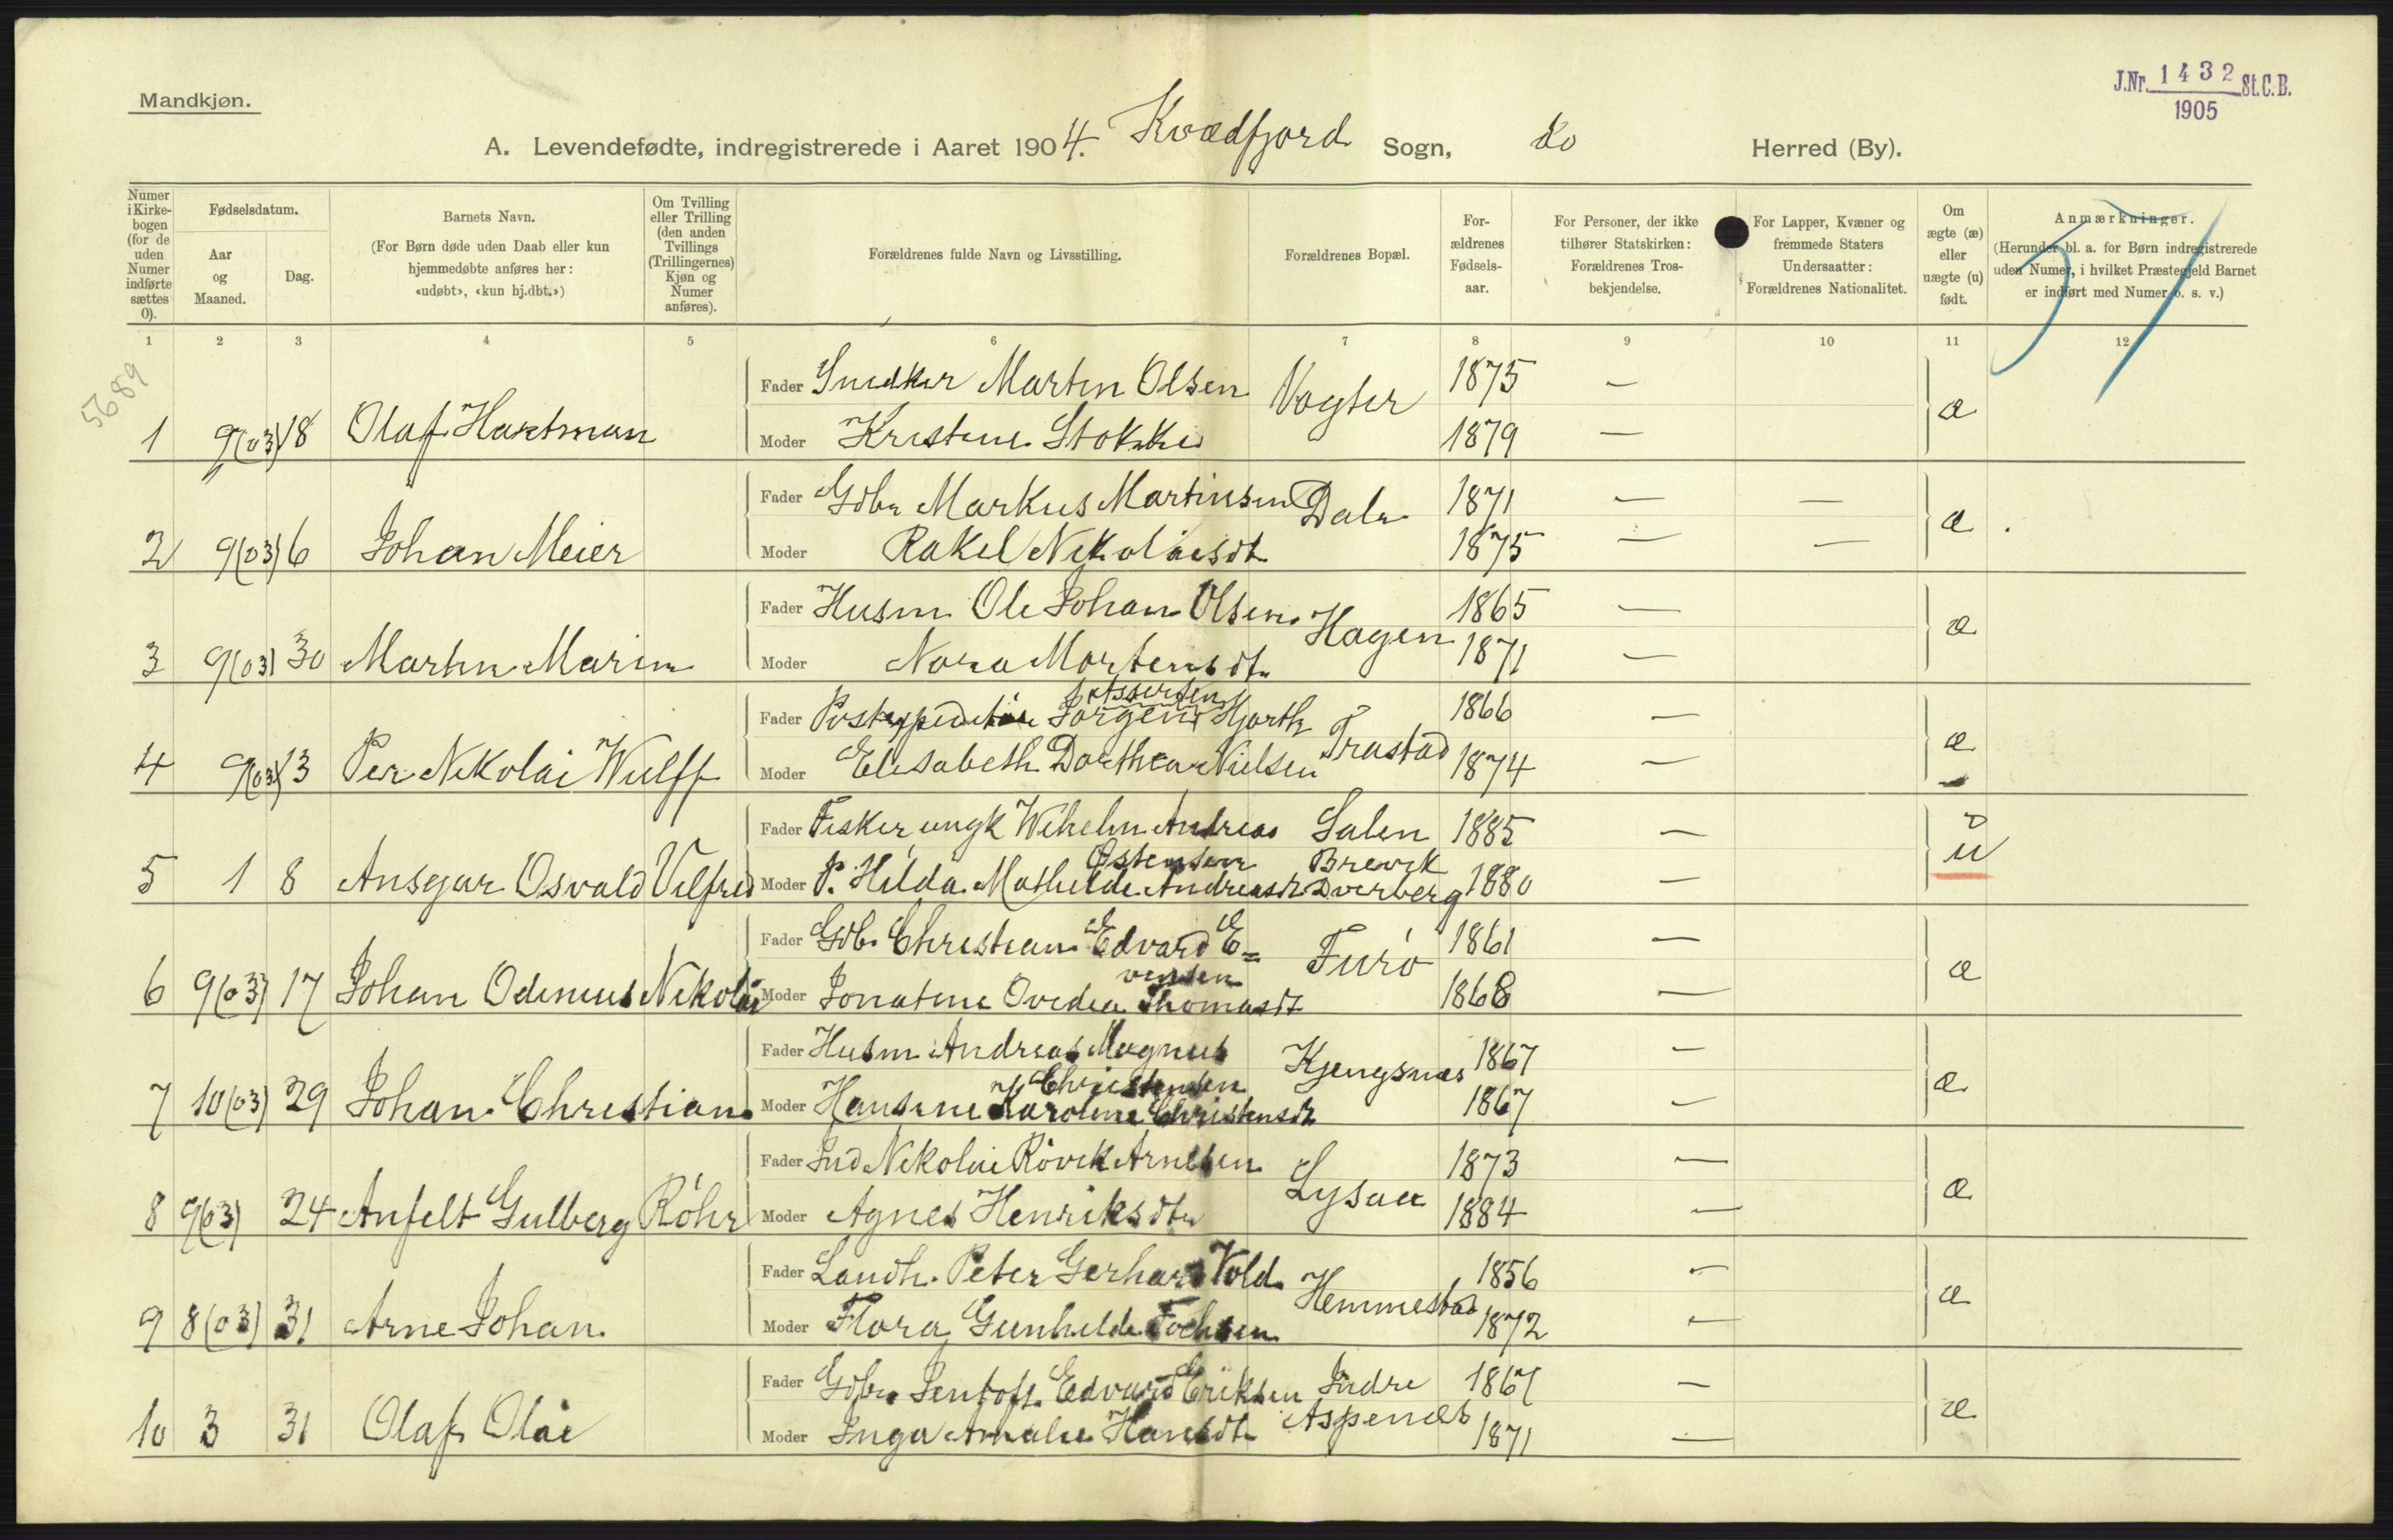 J.Nr. 1432 St.C.B.
1905
Mandkjøn.
A. Levendefødte, indregistrerede i Aaret 1904. Kvædfjord Sogn, do Herred (By).
Numer i Kirkebogen (for de uden Numer indførte sættes 0).
Fødselsdatum.
Aar og Maaned.
Dag.
Barnets Navn.
(For Børn døde uden Daab eller kun hjemmedøbte anføres her: «udøbt», «kun hj.dbt.»)
Om Tvilling eller Trilling (den anden Tvillings (Trillingernes) Kjøn og Numer anføres).
Forældrenes fulde Navn og Livsstilling.
Forældrenes Bopæl.
Forældrenes Fødselsaar.
For Personer, der ikke tilhører Statskirken: Forældrenes Trosbekjendelse.
For Lapper, Kvæner og fremmede Staters Undersaatter: Forældrenes Nationalitet.
Om ægte (æ) eller uægte (u) født.
Anmærkninger.
(Herunder bl. a. for Børn indregistrerede uden Numer, i hvilket Præstegjeld Barnet er indført med Numer o. s. v.)
1 2 3 4 5 6 7 8 9 10 11 12
5689
Fader Snedker Martin Olsen Vogter 1875 —
1 9(03) 18 Olaf Hartman Moder Kristine Stokke 1879 — æ
Fader Gdbr Markus Martinsen Dale 1871 — —
2 9(03) 6 Johan Meier Moder Rakel Nikolaisdt 1875 — — æ
Fader Husm Ole Johan Olsen Hagen 1865 —
3 9(03) 30 Martin Marin Moder Nora Mortensdt 1871 — æ
Assersen
Fader Postexpeditør Jørgen Hjorth Trastad 1866 —
4 9(03) 13 Per Nikolai Wulff Moder Elisabeth Dorthea Nielsen 1874 — æ
Fader Fisker ungk Wilhelm Andreas Salen 1885 —
Østensen Brevik
5 1 8 Ansgar Osvald Vilfred Moder P. Hilda Mathilde Andreasdt Dverberg 1880 — u
Fader Gdb. Christian Edvard E= Furø 1861 —
vensen
6 9(03) 17 Johan Odinius Nikolai Moder Jonatine Ovedia Thomasdt 1868 — æ
Fader Husm Andreas Magnus Kjengsnæs 1867 —
Christensen
7 10(03) 29 Johan Christian Moder Hansine Karoline Christensdt 1867 — æ
Fader Ind Nikolai Røvik Arnesen Lysaa 1873 —
8 9(03) 24 Anfelt Gulberg Røhr Moder Agnes Henriksdtr 1884 — æ
Fader Landh. Peter Gerhard Vold Hemmestad 1856 —
9 8(03) 31 Arne Johan Moder Flora Gunhilde Fochsen 1872 — æ
Fader Gdbr Jentoft Edvard Eriksen Indre 1867 —
Aspenes
10 3 31 Olaf Olai Moder Inga Amalie Hansdt 1871 — æ